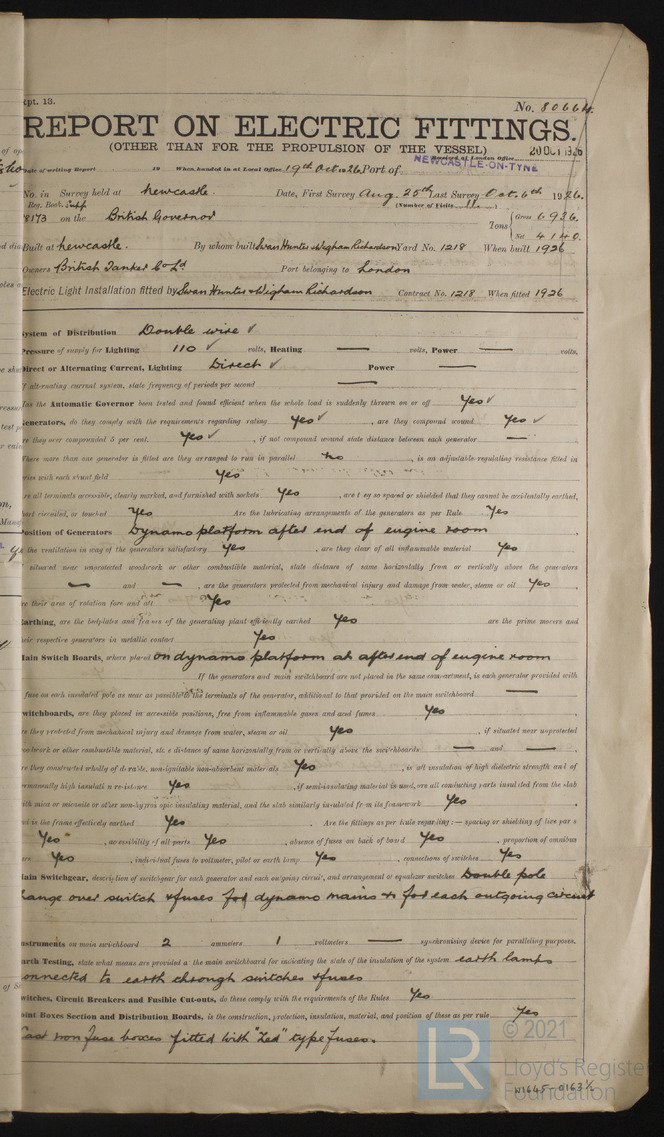 Rpt. 13.
No. 80664
REPORT ON ELECTRIC FITTINGS.
(OTHER THAN FOR THE PROPULSION OF THE VESSEL)
Received at London Office 20 OCT 1926
Date of writing Report 19 When handed in at Local Office 19th Oct 1926 Port of NEWCASTLE-ON-TYNE
No. in Survey held at Newcastle. Date, First Survey Aug. 25th Last Survey Oct. 6th 1926.
Reg. Book. Supp (Number of Visits 11)
8173 on the British Governor Tons { Gross 6926.
Net 4140.
Built at Newcastle. By whom built Swan Hunter & Wigham Richardson Yard No. 1218 When built 1926
Owners British Tanker Co Ld Port belonging to London
Electric Light Installation fitted by Swan Hunter & Wigham Richardson Contract No. 1218 When fitted 1926
System of Distribution Double wire ✓
Pressure of supply for Lighting 110 ✓ volts, Heating — volts, Power — volts.
Direct or Alternating Current, Lighting Direct ✓ Power —
If alternating current system, state frequency of periods per second —
Has the Automatic Governor been tested and found efficient when the whole load is suddenly thrown on or off Yes ✓
Generators, do they comply with the requirements regarding rating Yes ✓ , are they compound wound Yes ✓
are they over compounded 5 per cent. Yes ✓ , if not compound wound state distance between each generator —
Where more than one generator is fitted are they arranged to run in parallel no , is an adjustable regulating resistance fitted in
series with each shunt field Yes
Are all terminals accessible, clearly marked, and furnished with sockets Yes , are they so spaced or shielded that they cannot be accidentally earthed,
short circuited, or touched Yes Are the lubricating arrangements of the generators as per Rule Yes
Position of Generators Dynamo platform after end of engine room
is the ventilation in way of the generators satisfactory Yes , are they clear of all inflammable material Yes
if situated near unprotected woodwork or other combustible material, state distance of same horizontally from or vertically above the generators
— and — , are the generators protected from mechanical injury and damage from water, steam or oil Yes
are their axes of rotation fore and aft Yes
Earthing, are the bedplates and frames of the generating plant efficiently earthed Yes are the prime movers and
their respective generators in metallic contact Yes
Main Switch Boards, where placed on dynamo platform at after end of engine room
If the generators and main switchboard are not placed in the same compartment, is each generator provided with
a fuse on each insulated pole as near as possible to the terminals of the generator, additional to that provided on the main switchboard —
Switchboards, are they placed in accessible positions, free from inflammable gases and acid fumes Yes
are they protected from mechanical injury and damage from water, steam or oil Yes , if situated near unprotected
woodwork or other combustible material, state distance of same horizontally from or vertically above the switchboards — and —
are they constructed wholly of durable, non-ignitable non-absorbent materials Yes , is all insulation of high dielectric strength and of
permanently high insulation resistance Yes , if semi-insulating material is used, are all conducting parts insulated from the slab
with mica or micanite or other non-hygroscopic insulating material, and the slab similarly insulated from its framework Yes
and is the frame effectively earthed Yes . Are the fittings as per Rule regarding :— spacing or shielding of live parts
Yes , accessibility of all parts Yes , absence of fuses on back of board Yes , proportion of omnibus
bars Yes , individual fuses to voltmeter, pilot or earth lamp Yes , connections of switches Yes
Main Switchgear, description of switchgear for each generator and each outgoing circuit, and arrangement of equalizer switches Double pole
change over switch & fuses for dynamo mains & for each outgoing circuit
Instruments on main switchboard 2 ammeters 1 voltmeters — synchronising device for paralleling purposes.
Earth Testing, state what means are provided at the main switchboard for indicating the state of the insulation of the system earth lamps
connected to earth through switches & fuses
Switches, Circuit Breakers and Fusible Cut-outs, do these comply with the requirements of the Rules Yes
Joint Boxes Section and Distribution Boards, is the construction, protection, insulation, material, and position of these as per rule Yes
Cast iron fuse boxes fitted with "Zed" type fuses.
LR © 2021
Lloyd's Register
Foundation
W1645-0163½